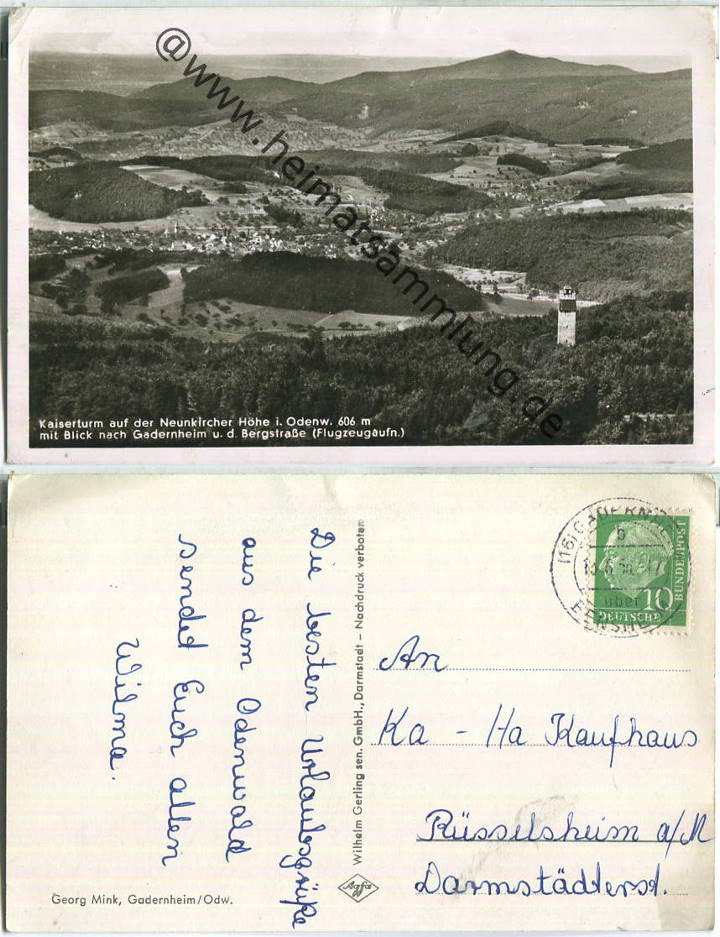 @www.heimatsammlung.de
Kaiserturm auf der Neunkircher Höhe i. Odenw. 606 m
mit Blick nach Gadernheim u. d. Bergstraße (Flugzeugaufn.)
Die besten Urlaubsgrüße
aus dem Odenwald
sendet Euch allen
Wilma.
Georg Mink, Gadernheim/Odw.
Wilhelm Gerling sen. GmbH., Darmstadt – Nachdruck verboten
Agfa
(16) GADERN
b
über
BENSHE
10
DEUTSCHE
BUNDESPOST
An
Ka - Ha Kaufhaus
Rüsselsheim a/M
Darmstädterst.